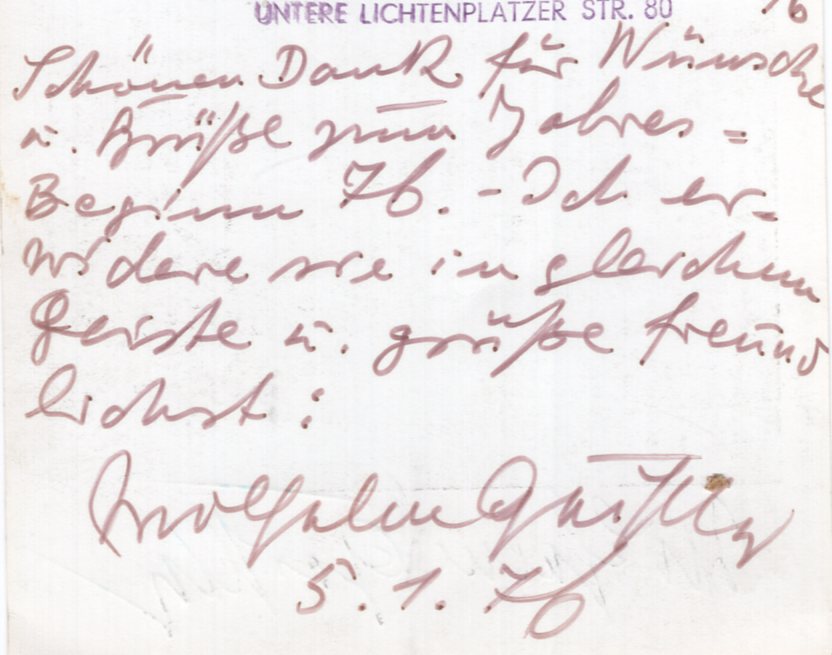 UNTERE LICHTENPLATZER STR. 80
76
Schönen Dank für Wünsche
u. Grüße zum Jahres=
Beginn 76. - Ich er-
widere sie in gleichem
Geiste u. grüße freund
lichst:
5.1.76